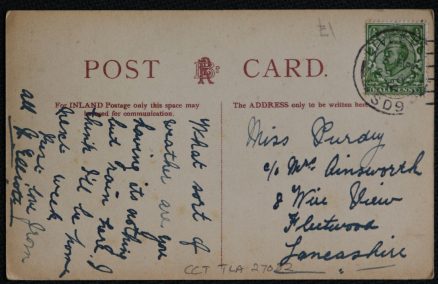 £1
POST CARD.
For INLAND Postage only this space may
be used for communication.
The ADDRESS only to be written here.
What sort of
weather are you
having its nothing
but rain here. I
think I'll be home
next week
love from
all J. Elliott
Miss Purdy
c/o Mrs Ainsworth
8 Wire View
Fleetwood
Lancashire
HALF PENNY
SD9
CCT TLA 27022